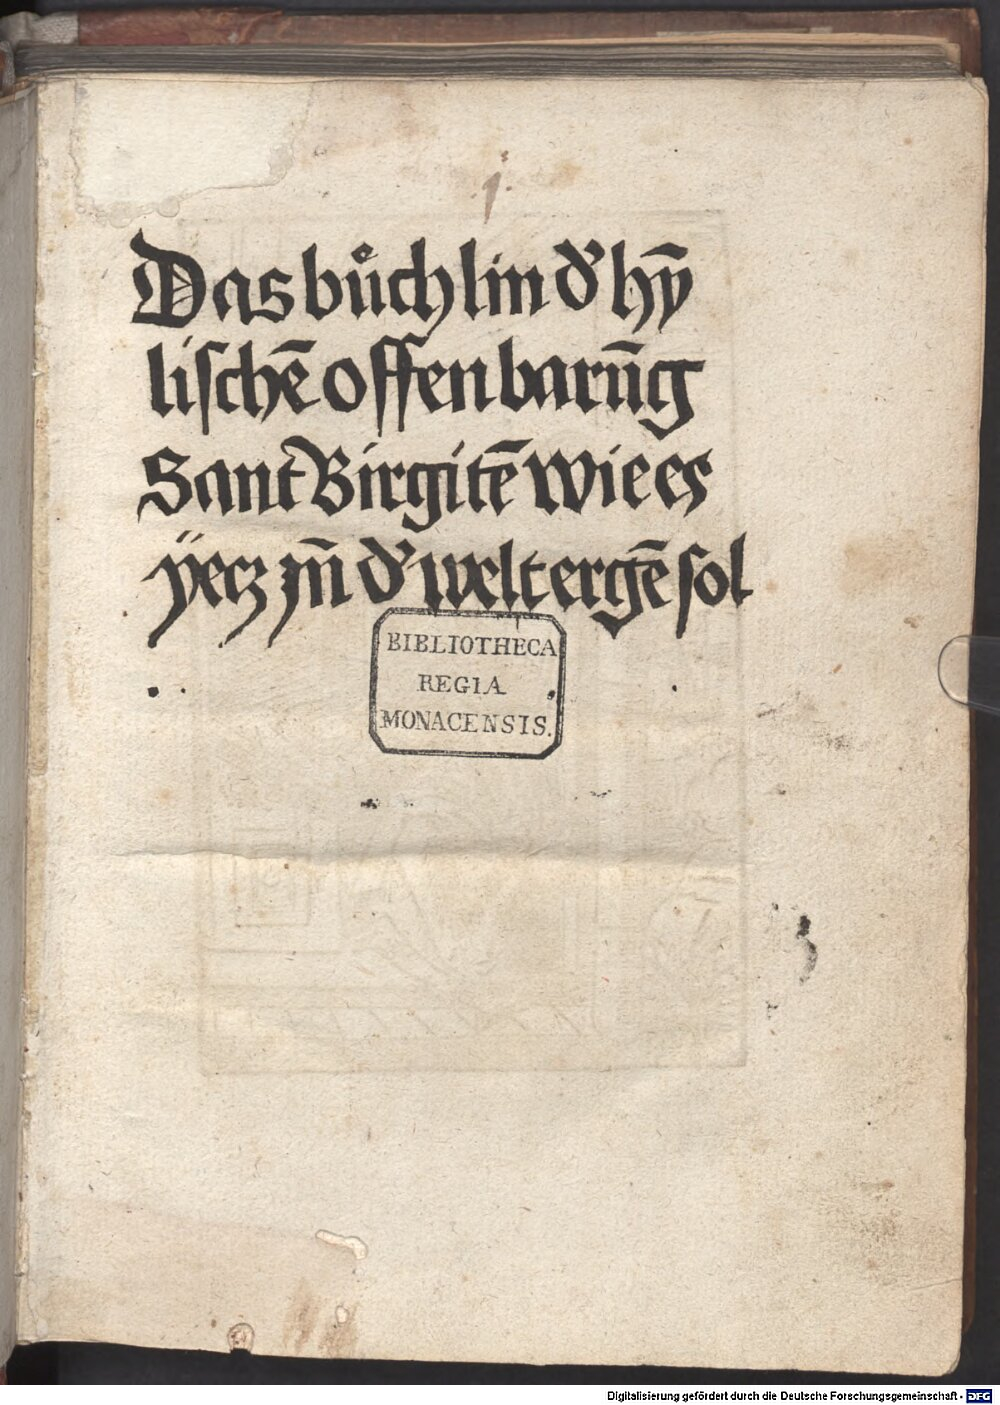 1.
Das bůchlin d' hȳ
lischē offenbarūg
Sant Birgitē wie es
ÿecz yn̄ d' welt ergē sol
BIBLIOTHECA
REGIA
MONACENSIS.
Digitalisierung gefördert durch die Deutsche Forschungsgemeinschaft - DFG